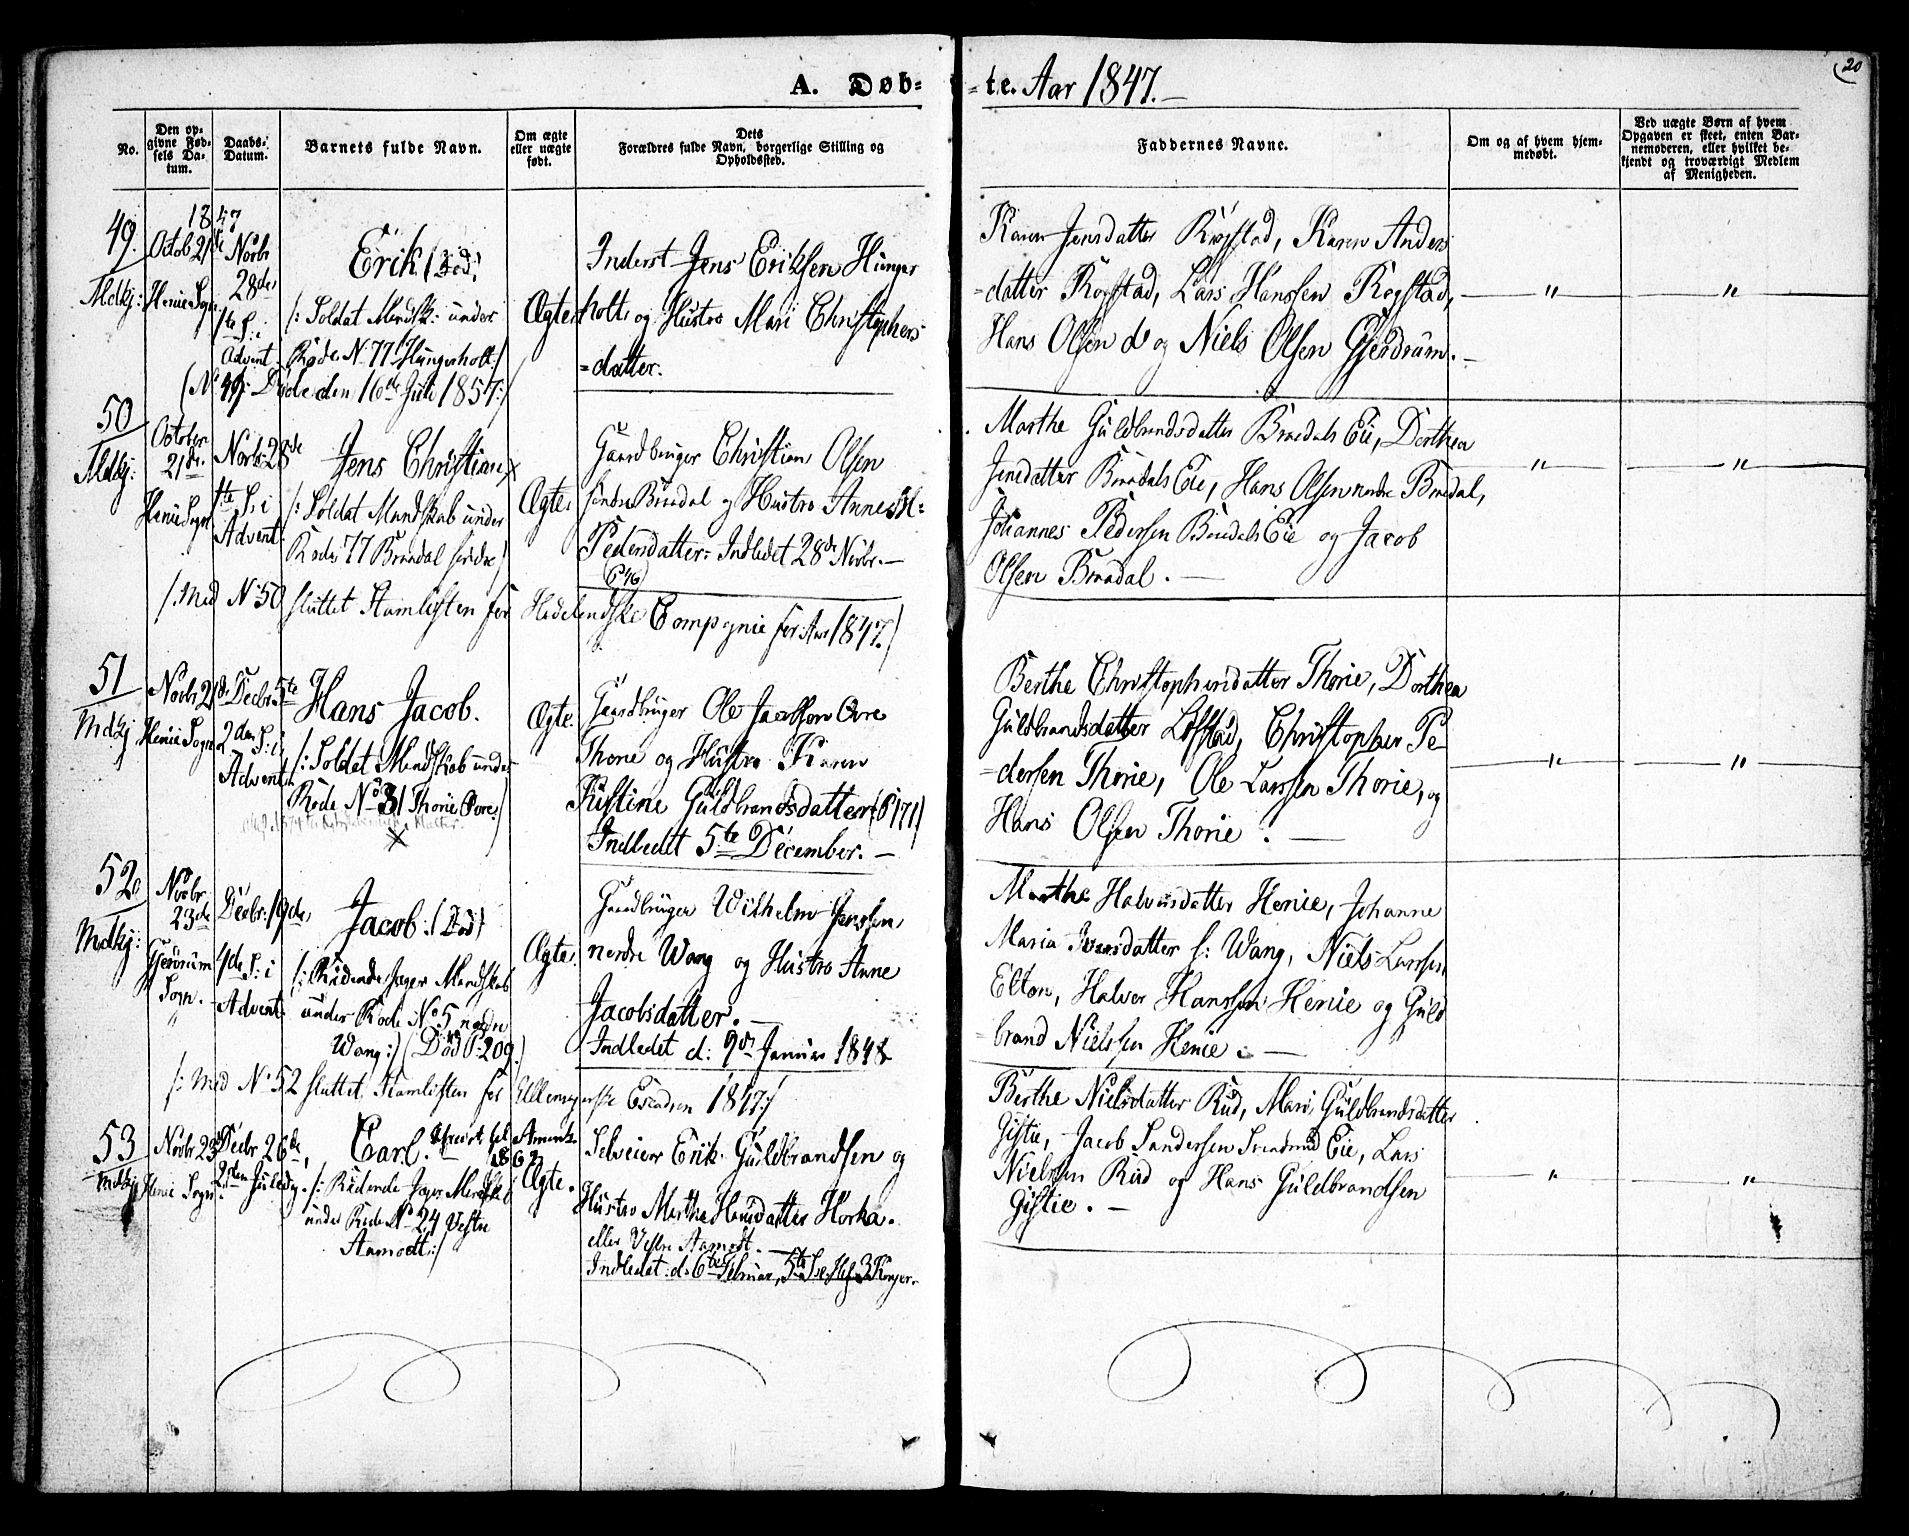 A. Døb-
=te. Aar 1847.
20
No.
Den op-
givne Fød-
sels Da-
tum.
Daabs-
Datum.
Barnets fulde Navn.
Om ægte
eller uægte
født.
Dets
Forældres fulde Navn, borgerlige Stilling og
Opholdssted.
Faddernes Navne.
Om og af hvem hjem-
medøbt.
Ved uægte Børn af hvem
Opgaven er skeet, enten Bar-
nemoderen, eller hvilket be-
kjendt og troværdigt Medlem
af Menigheden.
1847
49.
Mdkj:
Octob 21de
Henie Sogn
Novbr
28de,
1te S: i
Advent
Erik (Død)
/: Soldat Mandsk: under
Rode N: 77 Hungerholt:/
Ægte.
Inderst Jens Eriksen Hunger
holt, og Hustro Mari Christophers
=datter.
(No 49: Døde den 16de Juli 1857:/
Karen Jensdatter Rogstad, Karen Anders
=datter Rogstad, Lars Hanssen Rogstad,
Hans Olsen do og Niels Olsen Gjerdrum.
"
"
50
Mdkj:
October
21de.
Henie Sogn
Novb: 28de
1te S: i
Advent
Jens Christian x
/: Soldat Mandskab under
Rode 77 Brædal søndre)
Ægte.
Gaardbruger Christian Olsen
søndre Brædal og Hustro Anne H:
Pedersdatter: Indledet 28de Novbr.
/: Med No 50 sluttet Stamlisten for Hedelendske Compagnie for Aar 1847.)
Marthe Guldbrandsdatter Brædals Eie, Dorthea
Jensdatter Brædals Eie, Hans Olsen nordre Brædal,
Johannes Pedersen Brædals Eie og Jacob
Olsen Brædal.
"
"
51
Mdkj
Novbr 21de
Henie Sogn
Decbr: 5te
2den S: i
Advent
Hans Jacob.
/: Soldat Mandskab under
Rode No 31 Thorie Øvre)
x
Ægte.
Gaardbruger Ole Jacobsen Øvre
Thorie og Hustro Karen
Kistine Guldbrandsdatter (P 171)
Indledet 5te December.
Berthe Christophersdatter Thorie, Dorthea
Guldbrandsdatter Løfstad, Christopher Pe-
=dersen Thorie, Ole Larssen Thorie, og
Hans Olsen Thorie.
"
"
52
Mdkj:
Novbr
23de
Gjerdrum
Sogn.
Decbr: 19de,
4de S: i
Advent
Jacob: (Død)
/: Ridende Jæger Mandskab
under Rode No 5 nordre
Wang:/ (Død P: 209.)
Ægte.
Gaardbruger Wilhelm Jenssen,
nordre Wang og Hustro Anne
Jacobsdatter.
Indledet d: 9de Januar 1848
/: Med No 52 sluttet Stamlisten for Ullensagerske Escadron 1847:/
Marthe Halvorsdatter Henie, Johanne
Maria Iversdatter s: Wang, Niels Larssen
Elton, Halvor Hanssen Henie og Guld
=brand Nielssen Henie.
53
Mdkj
Novbr 23de
Henie Sogn
Decbr 26de,
2den Juledag.
Carl.
/: Ridende Jæger Mandskab
under Rode No 24 Vestre
Aamodt:/
1867
Ægte.
Selveier Erik Guldbrandsen og
Hustro Marthe Hansdatter Horka.
eller Vestre Aamodt.
Indledet: d: 6te Februar,
Berthe Nielsdatter Rud, Mari Guldbrandsdatter
Gistie, Jacob Sandersen Svendrud Eie, Lars
Nielssen Rud og Hans Guldbrandsen
Gistie.
"
"